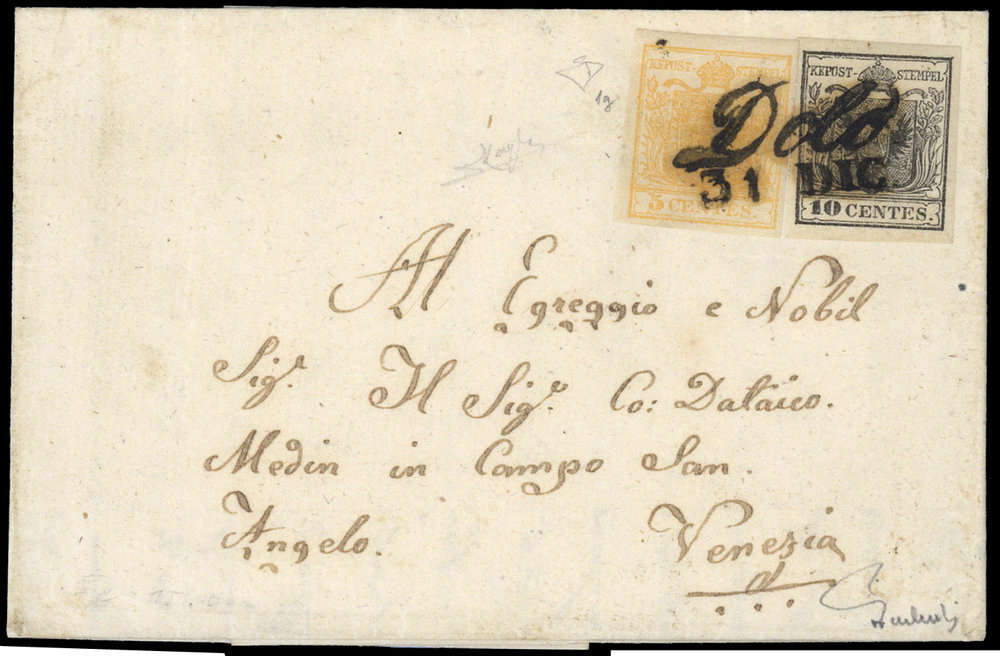 KEPOST-STEMPEL KEPOST-STEMPEL
Dolo
31 DIC.
5 CENTES. 10 CENTES.
Al Egreggio e Nobil
Sig.r Il Sig.r Co: Dataico.
Medin in Campo San.
Angelo. Venezia